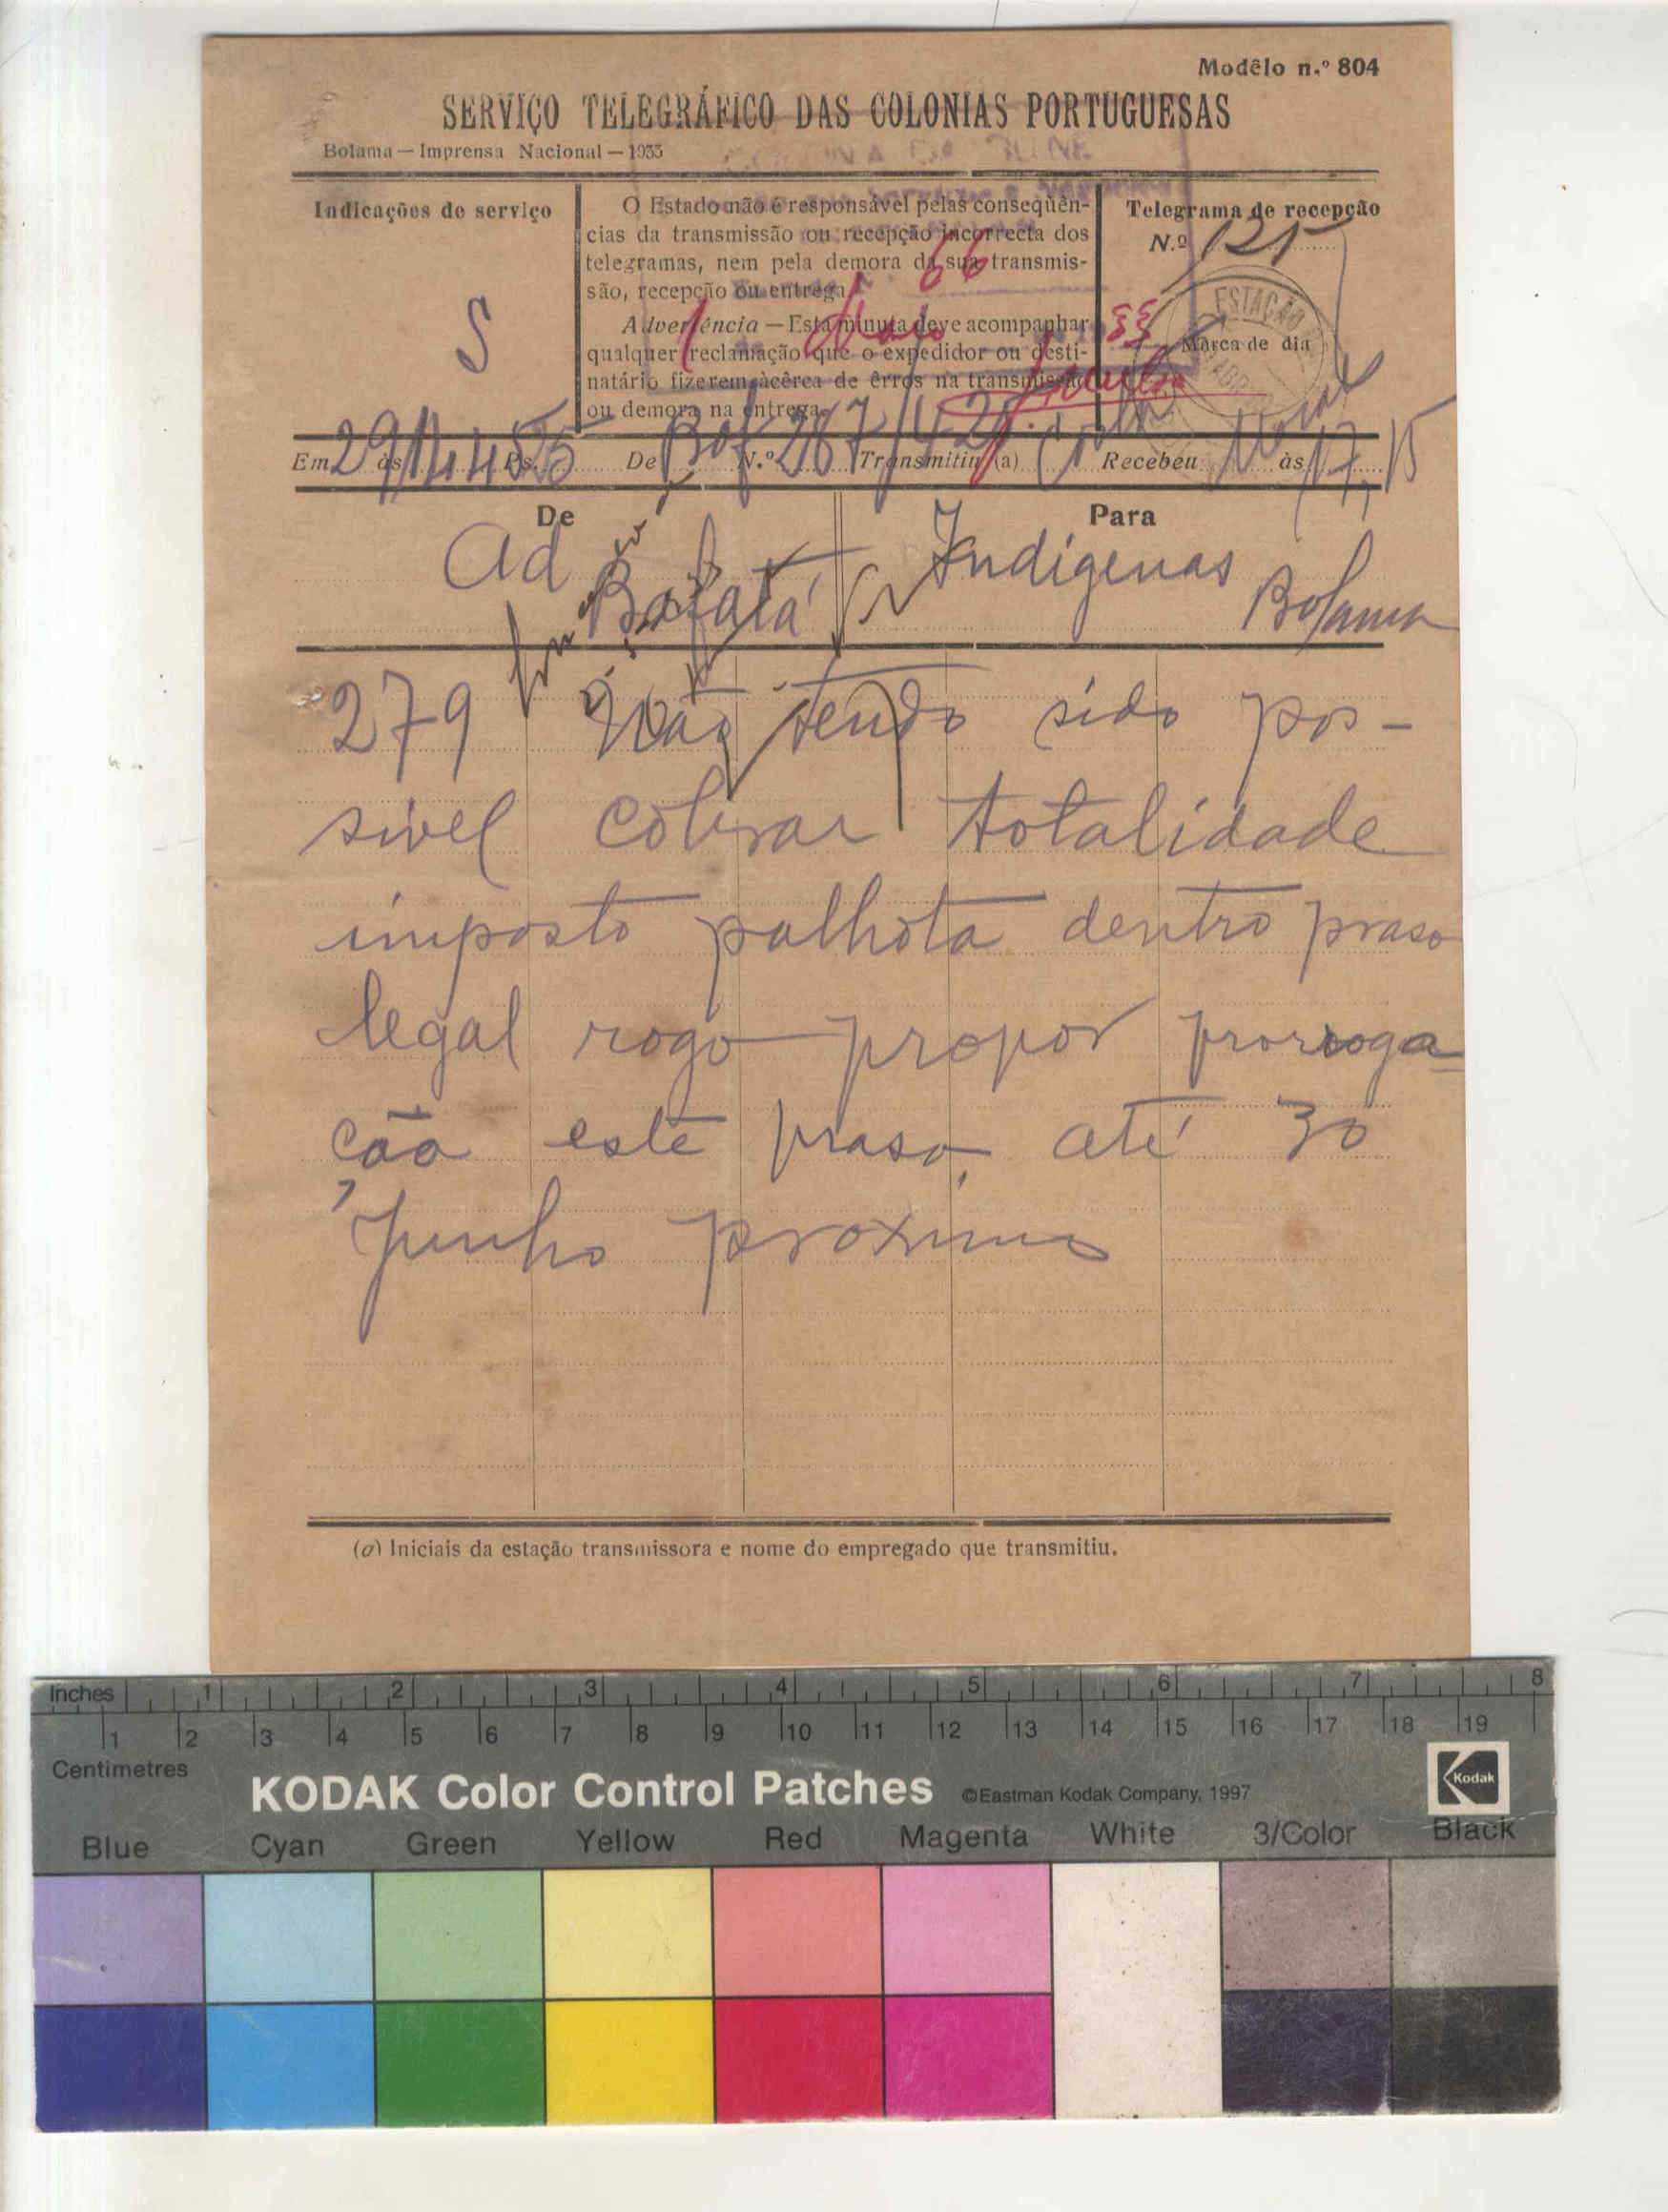 Modêlo n.º 804
SERVIÇO TELEGRÁFICO DAS COLONIAS PORTUGUESAS
Bolama — Imprensa Nacional — 1933
Indicações de serviço
S
O Estado não é responsável pelas conseqüên-
cias da transmissão ou recepção incorrecta dos
telegramas, nem pela demora da sua transmis-
são, recepção ou entrega
Advertência — Esta minuta deve acompanhar
qualquer reclamação que o expedidor ou desti-
natário fizerem àcêrca de êrros na transmissão
ou demora na entrega.
66
1 Maio 33
Telegrama de recepção
N.º 125
ESTAÇÃO
Marca de dia
Em 29 às Ps. De Baf N.º 287 Transmitiu (a) Recebeu às 17,15
De
Para
Ad Bafatá
Indigenas Bolama
279 Não tendo sido pos-
sivel cobrar totalidade
imposto palhota dentro praso
legal rogo propor prorroga
ção este praso até 30
Junho proximo
(a) Iniciais da estação transmissora e nome do empregado que transmitiu.
Inches 1 2 3 4 5 6 7 8
1 2 3 4 5 6 7 8 9 10 11 12 13 14 15 16 17 18 19
Centimetres
KODAK Color Control Patches ©Eastman Kodak Company, 1997 Kodak
Blue Cyan Green Yellow Red Magenta White 3/Color Black